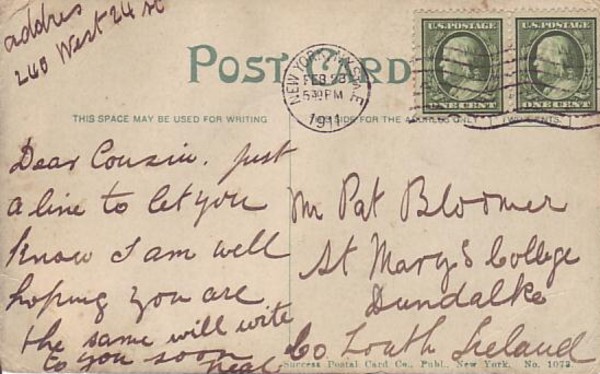 addres
240 West 24 st
POST CARD
U.S. POSTAGE
U.S. POSTAGE
ONE CENT
ONE CENT
NEW YORK, N.Y. STA. E
FEB 23
5 PM
1911
THIS SPACE MAY BE USED FOR WRITING
THIS SIDE FOR THE ADDRESS ONLY
Dear Cousin. just
a line to let you
know I am well
hoping you are
the same will write
to you soon Neal
Mr Pat Bloomer
St Mary's College
Dundalk
Co Louth Ireland
Success Postal Card Co., Publ., New York. No. 1073.